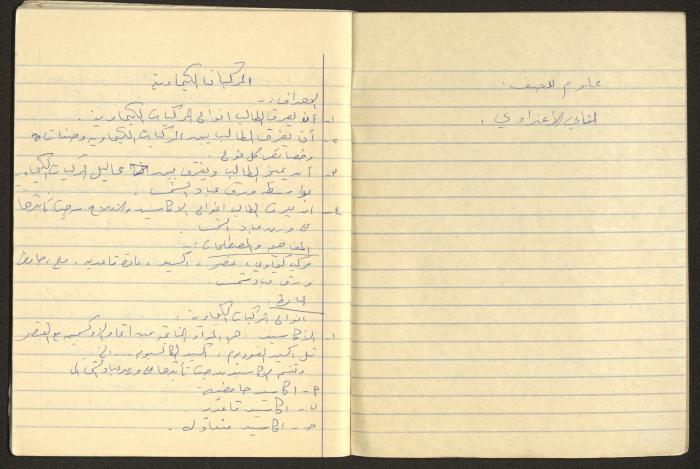 علوم للصف :
الثاني الأعدادي .
المركبات الكيماوية
الاهداف :-
١- أن يعرف الطالب انواع المركبات الكيماوية .
٢- أن يفرق الطالب بين المركبات الكيماوية وصفات
وخصائص كل نوع .
٣- أن يميز الطالب ويفرق بين محاليل المركبات الكيماوية
بواسطة ورق عباد الشمس .
٤- ان يعرف الطالب انواع الاكاسيد من حيث تأثيرها
على ورق عباد الشمس
المفاهيم والمصطلحات :-
مركب كيماوي ، عنصر ، اكسيد ، مادة قاعدية ، ملح ، حامض
ورق عباد شمس .
المادة :
انواع المركبات الكيماوية :
١- الأكاسيد : هي المواد الناتجة عن اتحاد الاوكسجين مع العنصر
مثل اكسيد الصوديوم ، اكسيد الكالسيوم ... الخ
وتقسم الاكاسيد من حيث تأثيرها على ورق عباد الشمس الى
٢- اكاسيد حامضية
ب- اكاسيد قاعدية .
ح- اكاسيد متعادلة .